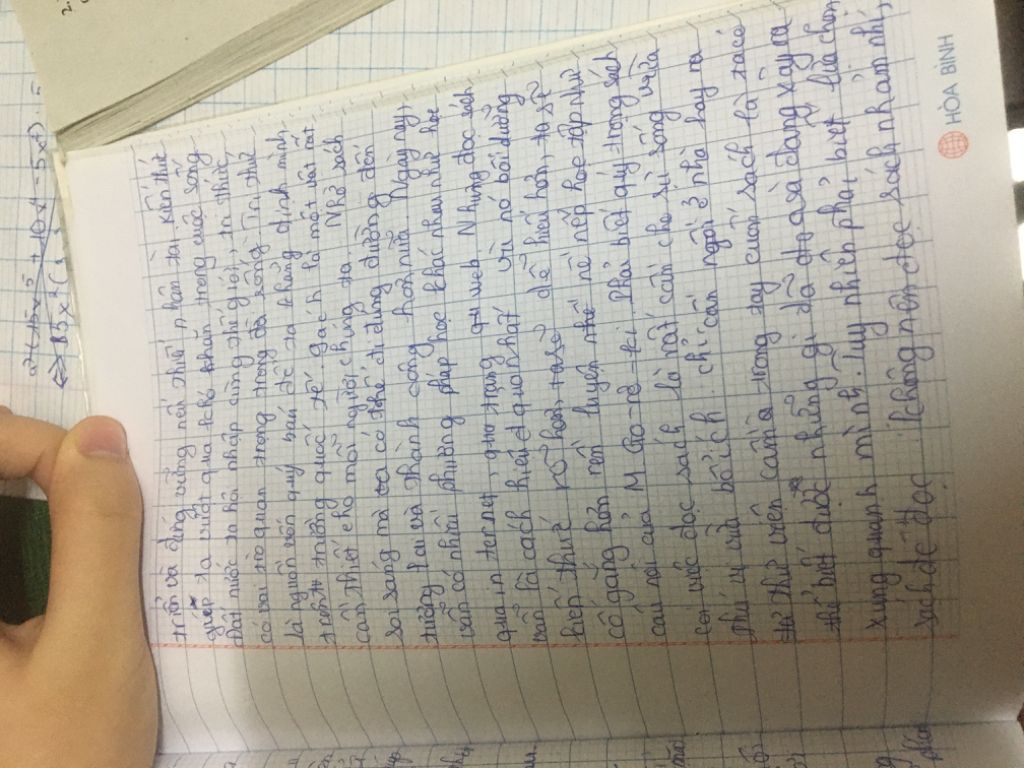 triển và đứng vững nếu thiếu nhân tài. Kiến thức
giúp ta vượt qua khó khăn trong cuộc sống
đất nước ta hội nhập cùng thế giới, tri thức
có vai trò quan trọng trong đời sống. Tri thức
là nguồn vốn quý báu để ta khẳng định mình,
trên trường quốc tế. Sách là một vấn rất
cần thiết cho mỗi người chúng ta. Nhờ sách
soi sáng mà ta có thể đi đúng đường đến
tương lai và thành công hơn nữa. Ngày nay,
vẫn có nhiều phương pháp học khác nhau như học
qua in ter net, qua trang qu web. Nhưng đọc sách
vẫn là cách hiệu quả nhất. Vì nó bồi dưỡng
kiến thức rõ hơn, ta sẽ dễ hiểu hơn, ta sẽ
cố gắng hơn rèn luyện thế nề nếp học tập như
câu nói của M Go-rơ-ki. Phải biết quý trọng sách
coi việc đọc sách là rất cần cho sự sống vừa
thú vị vừa bổ ích. chỉ cần ngồi ở nhà hay ra
thư viện cầm trong tay cuốn sách là ta có
thể biết được những gì đã và đang xảy ra
xung quanh mình. Tuy nhiên phải biết lựa chọn
sách để đọc. Không nên đọc sách nhảm nhí,
HÒA BÌNH